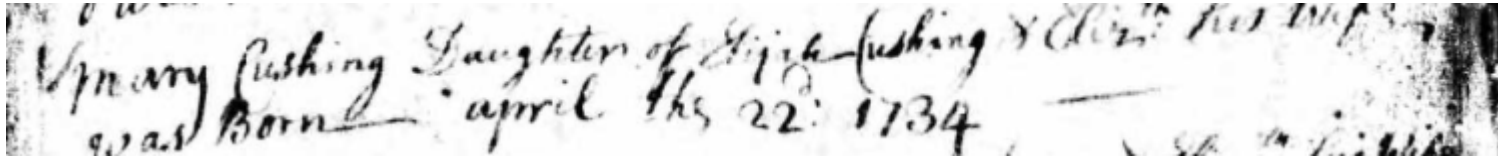 Mary Cushing Daughter of Elijah Cushing & Eliz.th his wife
was Born april the 22d: 1734